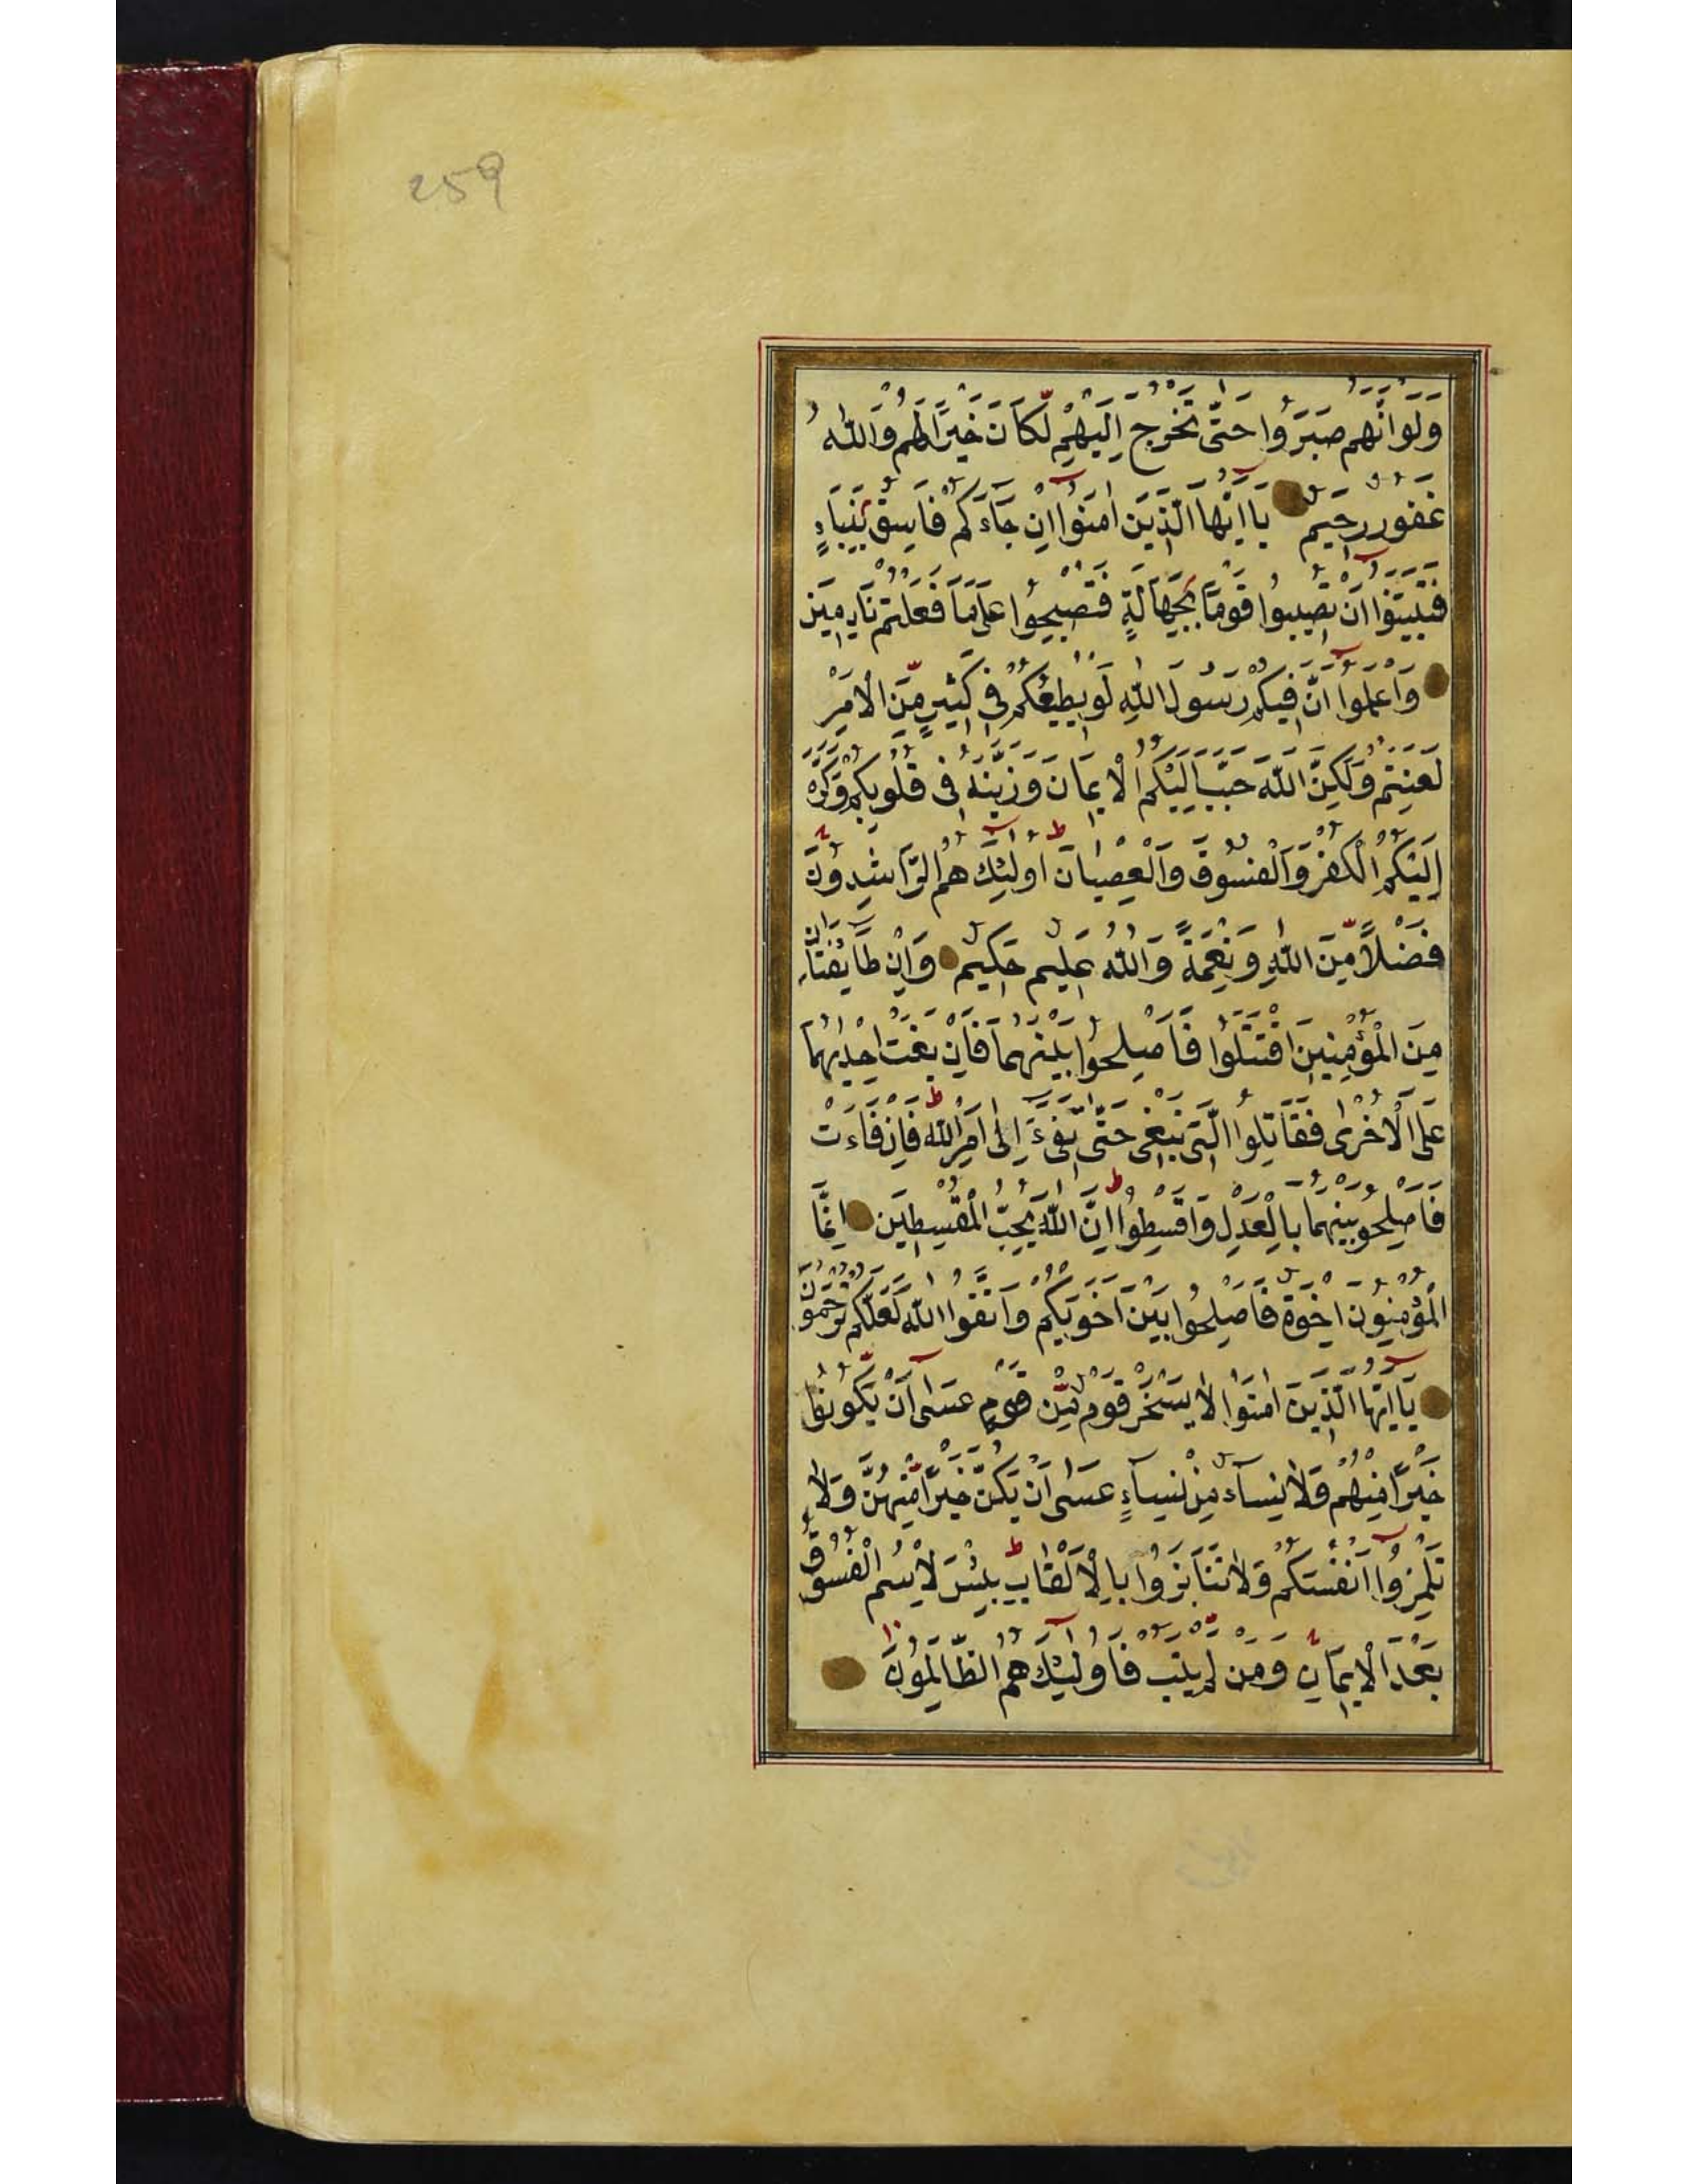 259
وَلَوْ اَنَّهُمْ صَبَرُوا حَتّٰى تَخْرُجَ اِلَيْهِمْ لَكَانَ خَيْرًا لَهُمْ وَاللّٰهُ
غَفُورٌ رَحِيمٌ يَا اَيُّهَا الَّذِينَ اٰمَنُوا اِنْ جَاءَكُمْ فَاسِقٌ بِنَبَاءٍ
فَتَبَيَّنُوا اَنْ تُصِيبُوا قَوْمًا بِجَهَالَةٍ فَتُصْبِحُوا عَلٰى مَا فَعَلْتُمْ نَادِمِينَ
وَاعْلَمُوا اَنَّ فِيكُمْ رَسُولَ اللّٰهِ لَوْ يُطِيعُكُمْ فِى كَثِيرٍ مِّنَ الْاَمْرِ
لَعَنِتُّمْ وَلٰكِنَّ اللّٰهَ حَبَّبَ اِلَيْكُمُ الْاِيمَانَ وَزَيَّنَهُ فِى قُلُوبِكُمْ وَكَرَّهَ
اِلَيْكُمُ الْكُفْرَ وَالْفُسُوقَ وَالْعِصْيَانَ اُولٰئِكَ هُمُ الرَّاشِدُونَ
فَضْلًا مِّنَ اللّٰهِ وَنِعْمَةً وَاللّٰهُ عَلِيمٌ حَكِيمٌ وَاِنْ طَائِفَتَانِ
مِنَ الْمُؤْمِنِينَ اقْتَتَلُوا فَاَصْلِحُوا بَيْنَهُمَا فَاِنْ بَغَتْ اِحْدٰيهُمَا
عَلَى الْاُخْرٰى فَقَاتِلُوا الَّتِى تَبْغِى حَتّٰى تَفِىءَ اِلٰى اَمْرِ اللّٰهِ فَاِنْ فَاءَتْ
فَاَصْلِحُو بَيْنَهُمَا بِالْعَدْلِ وَاَقْسِطُوا اِنَّ اللّٰهَ يُحِبُّ الْمُقْسِطِينَ اِنَّمَا
الْمُؤْمِنُونَ اِخْوَةٌ فَاَصْلِحُوا بَيْنَ اَخَوَيْكُمْ وَاتَّقُوا اللّٰهَ لَعَلَّكُمْ تُرْحَمُونَ
يَا اَيُّهَا الَّذِينَ اٰمَنُوا لَا يَسْخَرْ قَوْمٌ مِّنْ قَوْمٍ عَسٰى اَنْ يَكُونُوا
خَيْرًا مِنْهُمْ وَلَا نِسَاءٌ مِنْ نِسَاءٍ عَسٰى اَنْ يَكُنَّ خَيْرًا مِّنْهُنَّ وَلَا
تَلْمِزُوا اَنْفُسَكُمْ وَلَا تَنَابَزُوا بِالْاَلْقَابِ بِئْسَ لْاِسْمُ الْفُسُوقُ
بَعْدَ الْاِيمَانِ وَمَنْ لَمْ يَتُبْ فَاُولٰئِكَ هُمُ الظَّالِمُونَ